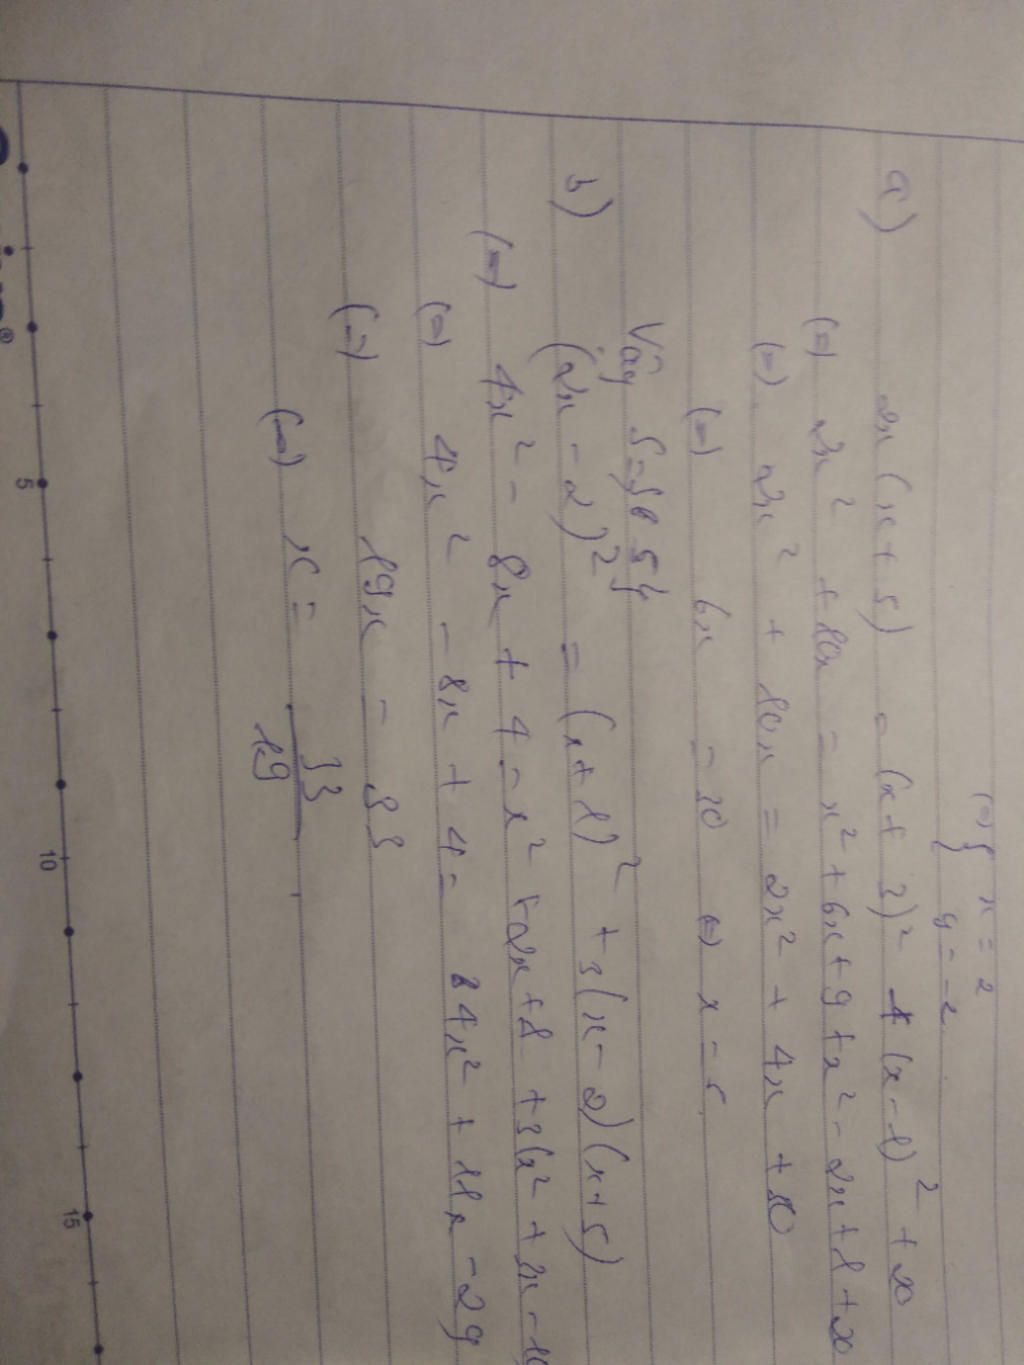 (=) { x = 2
y = -2
a) 2x(x+5) = (x+3)² + (x-1)² + 20
(=) 2x² + 10x = x² + 6x + 9 + x² - 2x + 1 + 20
(=) 2x² + 10x = 2x² + 4x + 30
(=) 6x = 30 (=) x = 5
Vậy S = { 5 }
b) (2x - 2)² = (x+1)² + 3(x-2)(x+5)
(=) 4x² - 8x + 4 = x² + 2x + 1 + 3(x² + 3x - 10
(=) 4x² - 8x + 4 = 4x² + 11x - 29
(=) 19x = 33
(=) x = 33/19
5
10
15